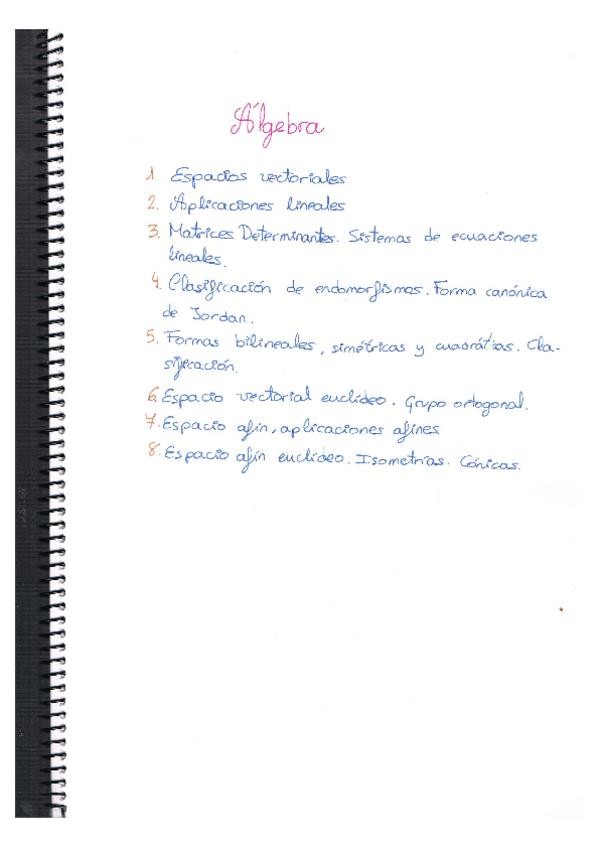 Álgebra
1. Espacios vectoriales
2. Aplicaciones lineales
3. Matrices Determinantes. Sistemas de ecuaciones
lineales.
4. Clasificación de endomorfismos. Forma canónica
de Jordan.
5. Formas bilineales, simétricas y cuadráticas. Cla-
sificación.
6. Espacio vectorial euclídeo. Grupo ortogonal.
7. Espacio afín, aplicaciones afines
8. Espacio afín euclídeo. Isometrías. Cónicas.